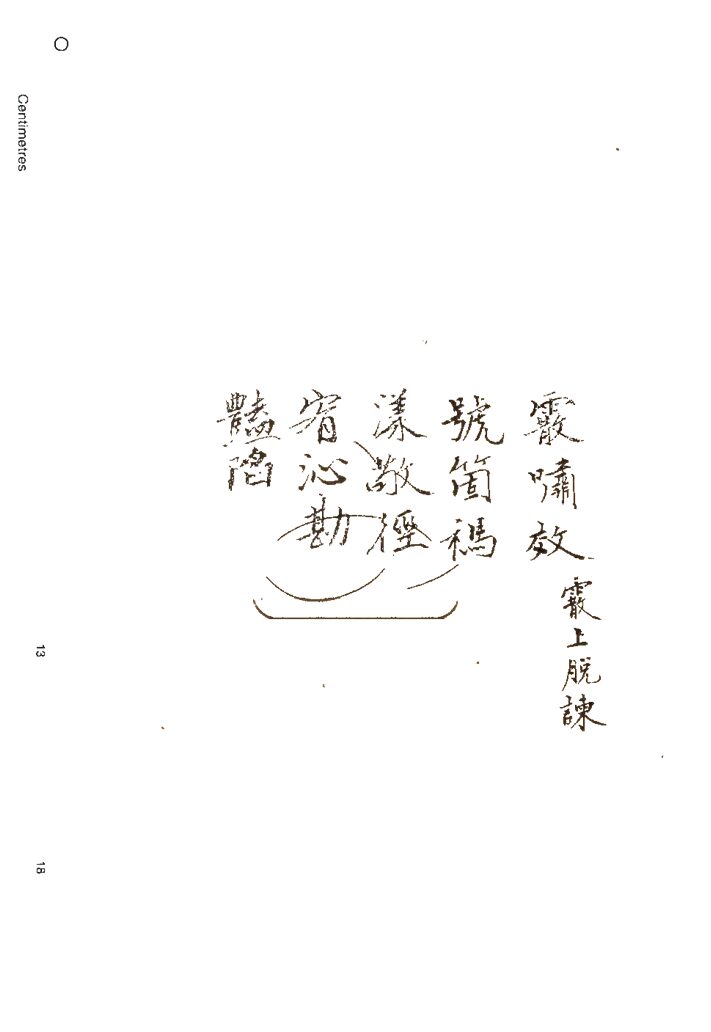 霰嘯效
霰上脫諫
號箇禡
漾敬徑
宥沁勘
豔陷
Centimetres
13
18